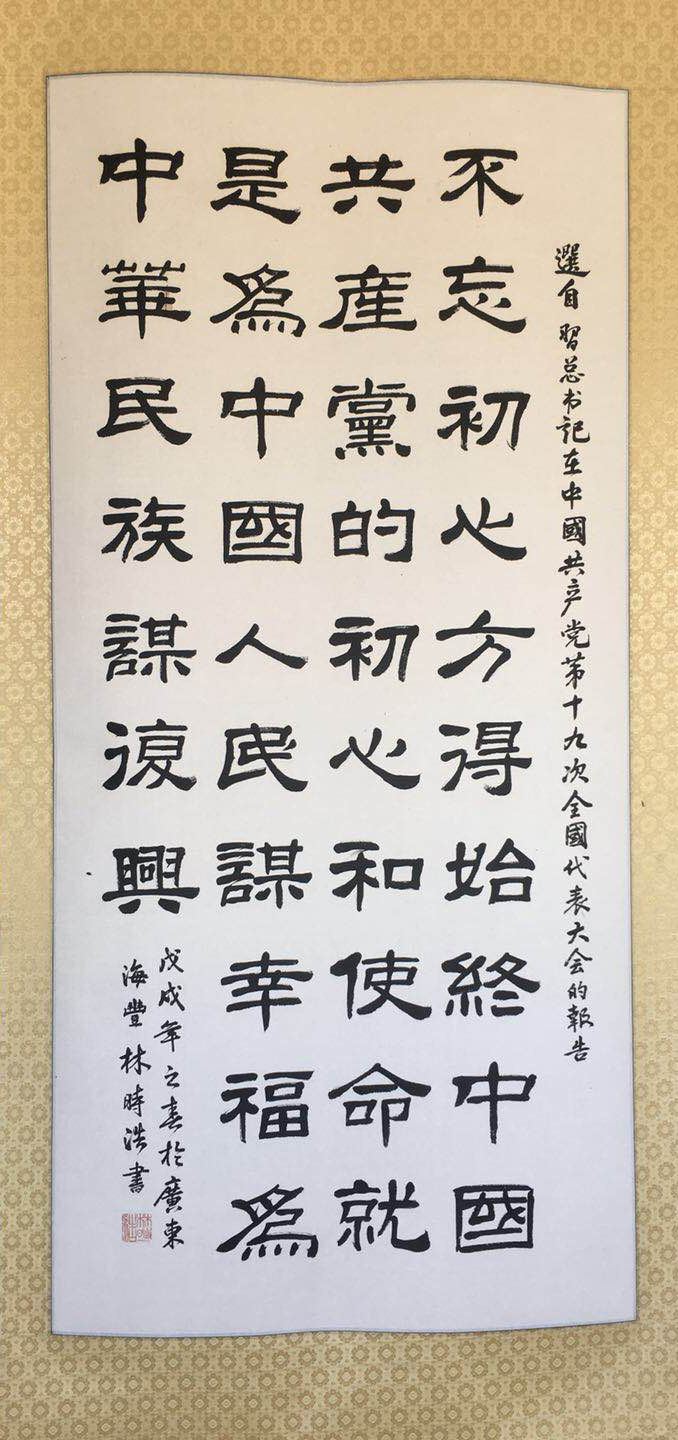 選自習总书記在中國共产党第十九次全國代表大会的報告
不忘初心方得始終中國
共產黨的初心和使命就
是爲中國人民謀幸福爲
中華民族謀復興
戊戌年之春於廣東
海豐林時浩書